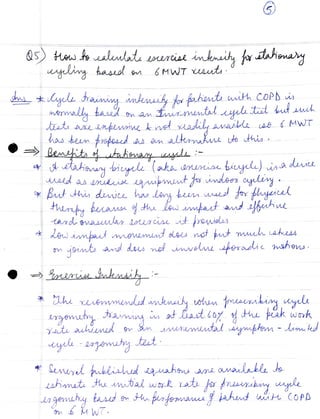 5
Q5) How to calculate exercise intensity for stationary
cycling based on 6MWT results.
Ans * Cycle training intensity for patients with COPD is
normally based on an Incremental cycle test but such
tests are expensive & not readily available so 6 MWT
has been proposed as an alternative to this.
⇒ Benefits of stationary cycle :-
* A stationary bicycle (aka exercise bicycle) is a device
used as exercise equipment for indoor cycling.
* But this device has long been used for physical
therapy because of the low impact and effective
cardiovascular exercise it provides
* Low impact movement does not put much stress
on joints and does not involve sporadic motions.
⇒ Exercise Intensity :-
* The recommended intensity when prescribing cycle
ergometry training is at least 60% of the peak work
rate achieved on an incremental symptom-limited
cycle-ergometry test.
* Several published equations are available to
estimate the initial work rate for prescribing cycle
ergometry based on the performance of patient with COPD
on 6 MWT.